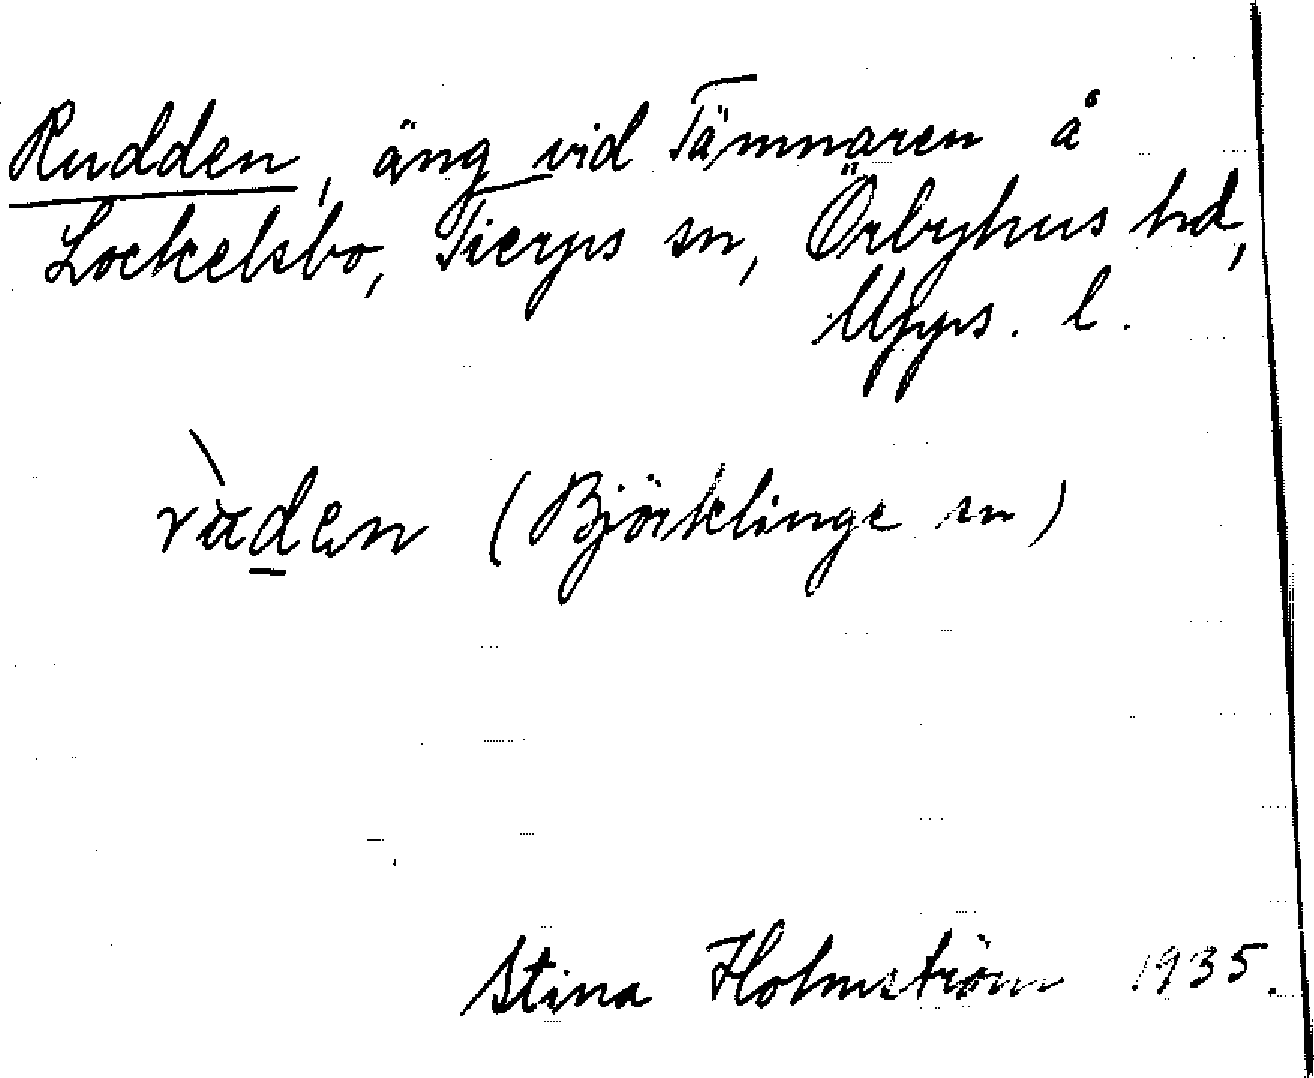 Rudden, äng vid Tämnaren å
Lockelsbo, Tierps sn, Örbyhus hd,
Upps. l.
(Björklinge sn)
Stina Holmström 1935.